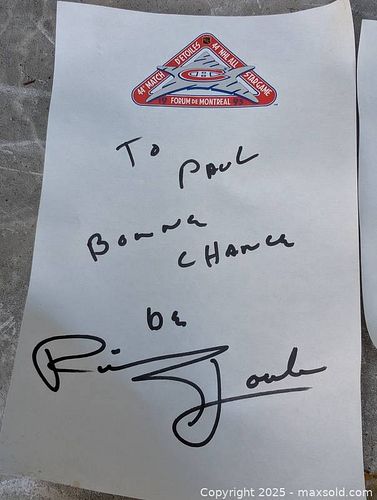 44e MATCH D'ETOILES
44th NHL ALL STAR GAME
19 FORUM DE MONTREAL 93
To
PAUL
BONNE
CHANCE
de
Copyright © 2025 - maxsold.com